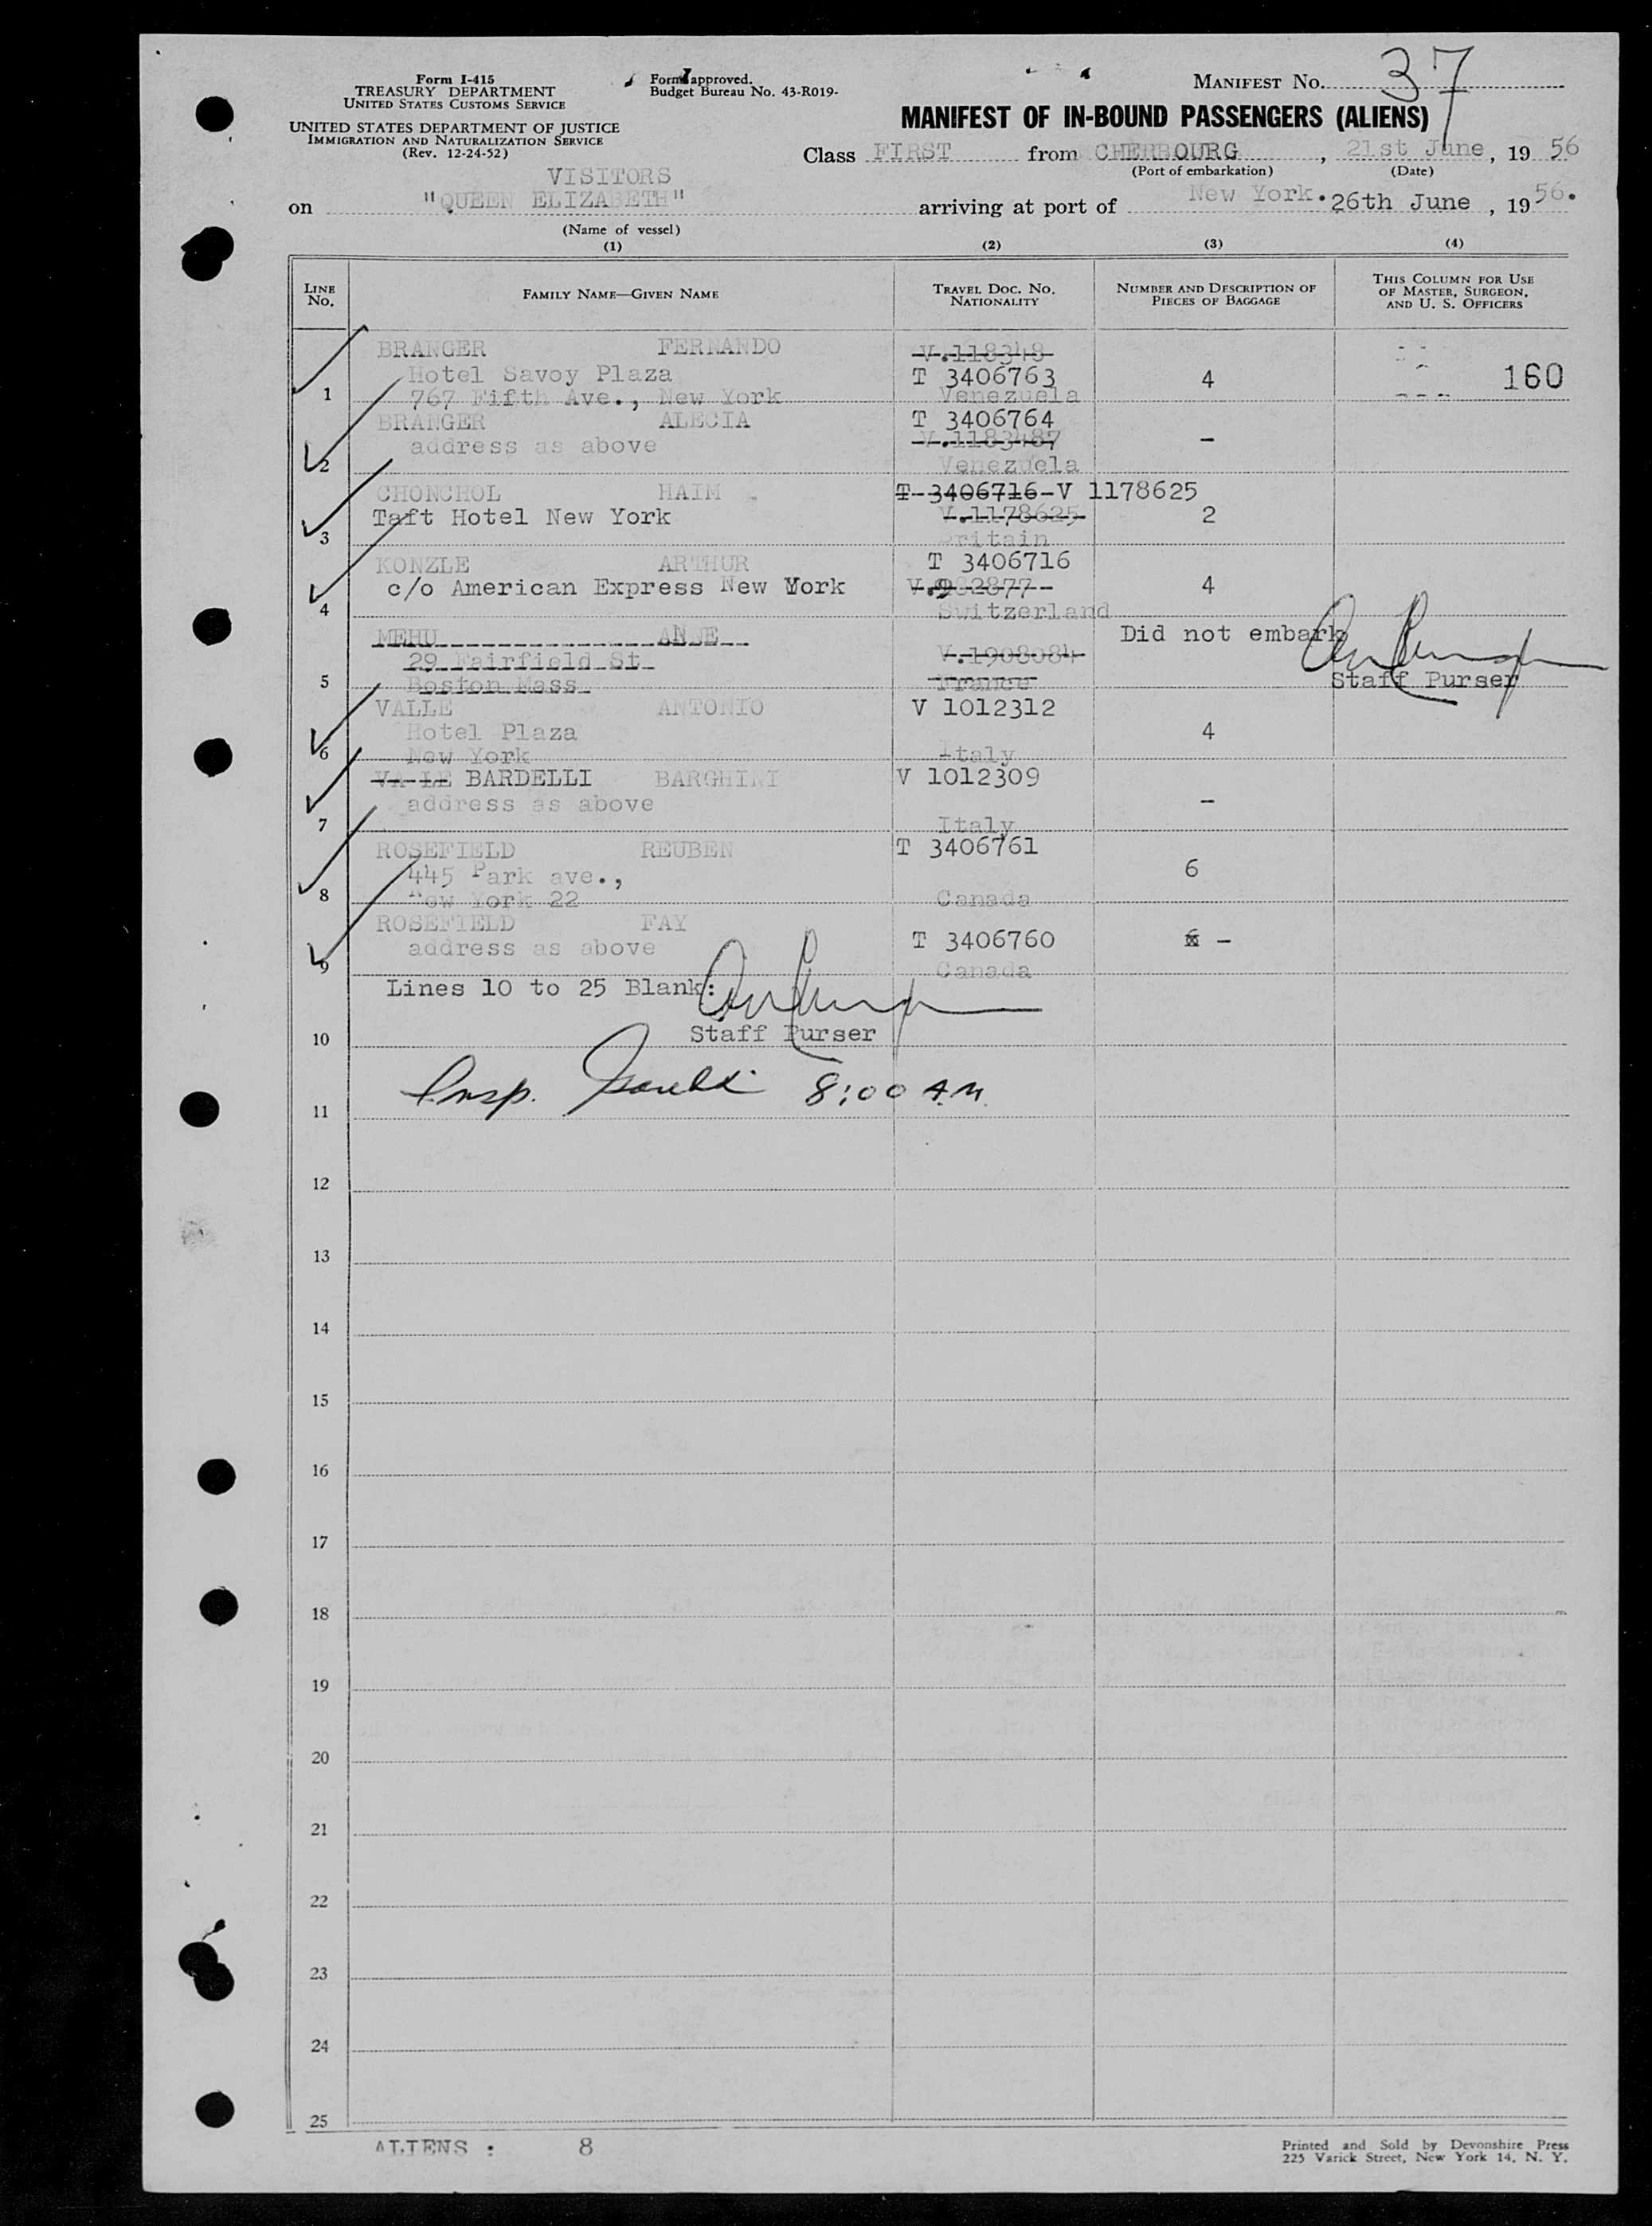 Form I-415
TREASURY DEPARTMENT
UNITED STATES CUSTOMS SERVICE
UNITED STATES DEPARTMENT OF JUSTICE
IMMIGRATION AND NATURALIZATION SERVICE
(Rev. 12-24-52)
Form approved.
Budget Bureau No. 43-R019-
MANIFEST No. 37
MANIFEST OF IN-BOUND PASSENGERS (ALIENS)
Class FIRST from CHERBOURG, 21st June, 19 56
(Port of embarkation) (Date)
VISITORS
on "QUEEN ELIZABETH" arriving at port of New York. 26th June, 19 56.
(Name of vessel)
(1) (2) (3) (4)
LINE No. FAMILY NAME—GIVEN NAME TRAVEL DOC. NO. NATIONALITY NUMBER AND DESCRIPTION OF PIECES OF BAGGAGE THIS COLUMN FOR USE OF MASTER, SURGEON, AND U. S. OFFICERS
BRANGER FERNANDO V.118348
Hotel Savoy Plaza T 3406763 4 160
1 767 Fifth Ave., New York Venezuela
BRANGER ALECIA T 3406764
address as above V.1183487 -
2 Venezuela
CHONCHOL HAIM T 3406716-V 1178625
Taft Hotel New York V.1178625 2
3 Britain
KONZLE ARTHUR T 3406716
c/o American Express New York V.982877 4
4 Switzerland
MEHU ANNE Did not embark
29 Fairfield St V.1908084
5 Boston Mass France Staff Purser
VALLE ANTONIO V 1012312
Hotel Plaza 4
6 New York Italy
VALLE BARDELLI BARGHINI V 1012309
address as above -
7 Italy
ROSEFIELD REUBEN T 3406761
445 Park ave., 6
8 New York 22 Canada
ROSEFIELD FAY
address as above T 3406760 -
9 Canada
Lines 10 to 25 Blank:
10 Staff Purser
11 Insp. 8:00 A.M.
12
13
14
15
16
17
18
19
20
21
22
23
24
25
ALIENS : 8
Printed and Sold by Devonshire Press
225 Varick Street, New York 14, N. Y.